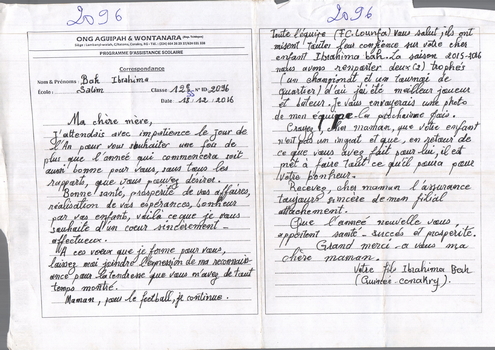 2096
ONG AGUIPAH & WONTANARA
PROGRAMME D'ASSISTANCE SCOLAIRE
Correspondance
Nom & Prénoms : Bah Ibrahima
École : Salim Classe : 12e SS N° ID : 2096
Date : 18.12.2016
Ma chère mère,
J'attendais avec impatience le jour de
l'An pour vous souhaiter une fois de
plus que l'année qui commencera soit
aussi bonne pour vous, sous tous les
rapports, que vous pouvez désirer.
Bonne santé, prospérité de vos affaires,
réalisation de vos espérances, bonheur
par vos enfants, voilà ce que je vous
souhaite d'un cœur sincèrement
affectueux.
A ces voeux que je forme pour vous,
laissez moi joindre l'expression de ma reconnaiss-
ance pour la tendresse que vous m'avez de tout
temps montré.
Maman, pour le football, je continue.
2096
Toute l'équipe (F.C. Lounfa) vous salut, ils ont
misent toutes leur confience sur votre cher
enfant Ibrahima bah. La saison 2015-2016
nous avons remporter deux (2) trophés
(un championat et un tournoi de
quartier) d'où j'ai été meilleur joueur
et buteur. je vous envayerais une photo
de mon équipe la prochaine fois.
Croyez, cher maman, que votre enfant
n'est pas un ingrat et que, en retour de
ce que vous avez fait pour lui, il est
prêt à faire tout ce qu'il poura pour
votre bonheur.
Recevez, cher maman l'assurance
toujours sincère de mon filial
attachement.
Que l'anneé nouvelle vous
apportent santé - succès et prosperité.
Grand merci à vous ma
chère maman.
Votre fils Ibrahima Bah
(Guinée-conakry).